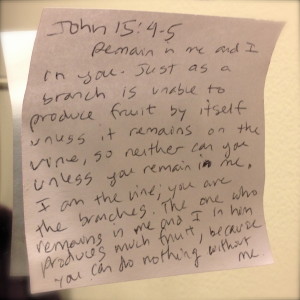 John 15:4-5
Remain in me and I
in you. Just as a
branch is unable to
produce fruit by itself
unless it remains on the
vine, so neither can you
unless you remain in me.
I am the vine; you are
the branches. The one who
remains in me and I in him
produces much fruit, because
you can do nothing without
me.